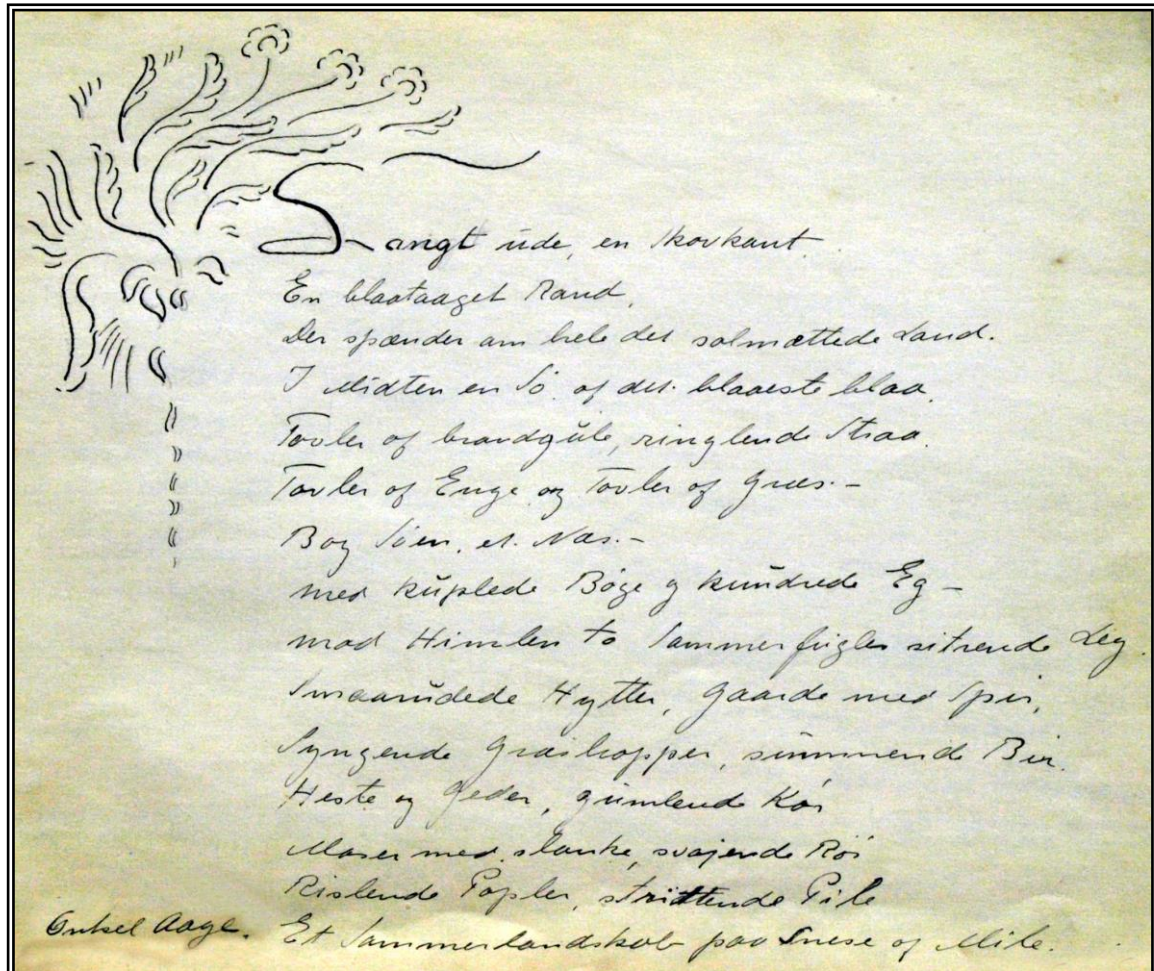 Langt ude, en Skovkant.
En blaataaget Rand,
Der spænder om hele det solmættede Land.
I Midten en Sö af det blaaeste blaa,
Tavler af brandgule, ringlende Straa.
Tavler af Enge og Tavler af Græs. -
Bag Söen, et Næs. -
med kuplede Böge og Eg -
mod Himlen to Sommerfugles sitrende Leg.
Smaarudede Hytter, Gaarde med Spir,
Syngende Græshopper, summende Bier.
Heste og Geder, gumlende Kör
Moser med slanke, svajende Rör
Rislende Popler, strittende Pile
Et Sommerlandskab paa Snese af Mile.
Onkel Aage.